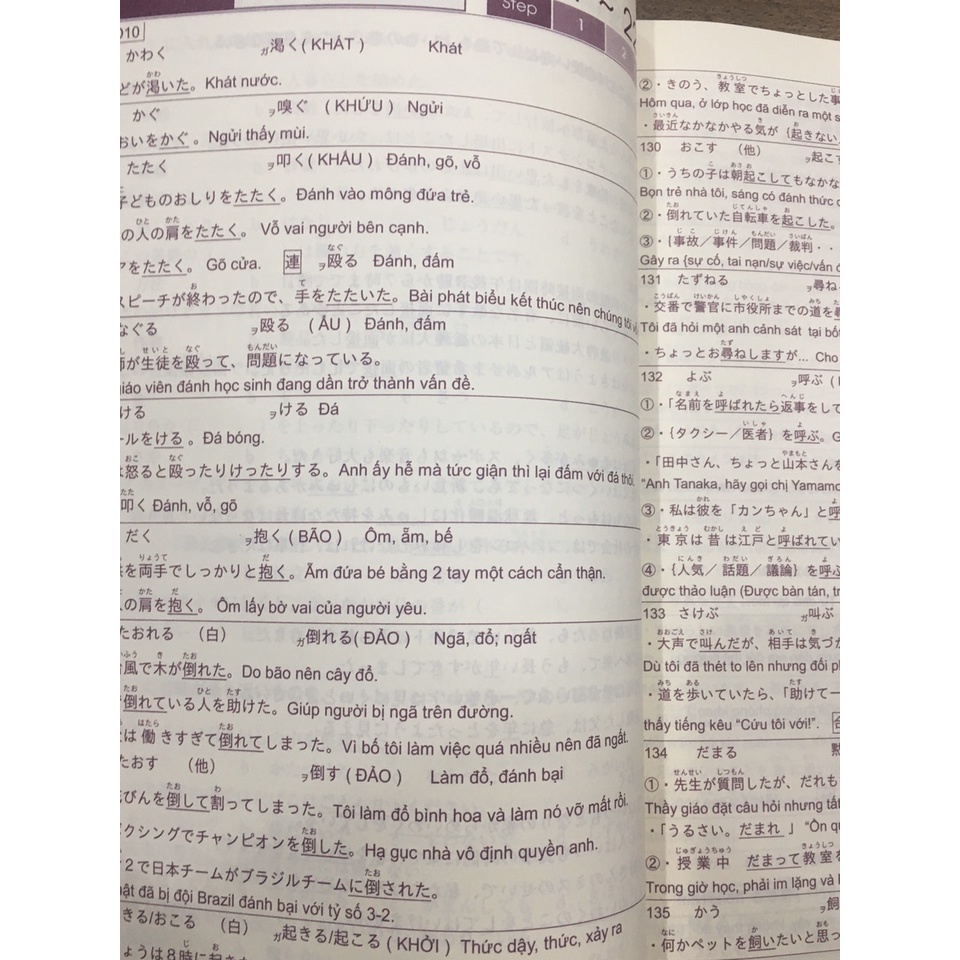 Step 1 2
010
かわく ガ渇く( KHÁT ) Khát
どが渇いた。Khát nước.
かぐ ヲ嗅ぐ ( KHỨU ) Ngửi
おいをかぐ 。Ngửi thấy mùi.
たたく ヲ叩く( KHẤU ) Đánh, gõ, vỗ
子どものおしりをたたく。Đánh vào mông đứa trẻ.
の人の肩をたたく。 Vỗ vai người bên cạnh.
アをたたく。Gõ cửa. 連 ヲ殴る Đánh, đấm
スピーチが終わったので、手をたたいた。Bài phát biểu kết thúc nên chúng tôi
なぐる ヲ殴る ( ẨU ) Đánh, đấm
師が生徒を殴って、問題になっている。
iáo viên đánh học sinh đang dần trở thành vấn đề.
ける ヲける Đá
ールをける 。Đá bóng.
は怒ると殴ったりけったりする。Anh ấy hễ mà tức giận thì lại đấm với đá thôi.
叩く Đánh, vỗ, gõ
だく ヲ抱く ( BÃO ) Ôm, ẵm, bế
を両手でしっかりと抱く。Ẵm đứa bé bằng 2 tay một cách cẩn thận.
人の肩を抱く。 Ôm lấy bờ vai của người yêu.
たおれる (白) ガ倒れる( ĐẢO ) Ngã, đổ; ngất
風で木が倒れた。Do bão nên cây đổ.
倒れている人を助けた。Giúp người bị ngã trên đường.
は働きすぎて倒れてしまった。Vì bố tôi làm việc quá nhiều nên đã ngất.
たおす (他) ヲ倒す( ĐẢO ) Làm đổ, đánh bại
びんを倒して割ってしまった。Tôi làm đổ bình hoa và làm nó vỡ mất rồi.
ボクシングでチャンピオンを倒した。Hạ gục nhà vô định quyền anh.
2で日本チームがブラジルチームに倒された。
hật đã bị đội Brazil đánh bại với tỷ số 3-2.
きる/おこる (白) ガ起きる/起こる ( KHỞI ) Thức dậy, thức, xảy ra
ょうは8時に起き
②・きのう、教室でちょっとした事
Hôm qua, ở lớp học đã diễn ra một s
・最近なかなかやる気が {起きない
130 おこす (他) ヲ起こす
①・うちの子は朝起こしてもなかな
Bọn trẻ nhà tôi, sáng có đánh thức c
②・倒れていた自転車を起こした。
③・{事故/事件/問題/裁判・・
Gây ra {sự cố, tai nạn/sự việc/vấn đ
131 たずねる ヲ尋ね
・交番で警官に市役所までの道を尋
Tôi đã hỏi một anh cảnh sát tại bốt
・ちょっとお尋ねしますが… Cho
132 よぶ ヲ呼ぶ (
①・「名前を呼ばれたら返事をして
②・{タクシー/医者} を呼ぶ。G
・「田中さん、ちょっと山本さんを
“Anh Tanaka, hãy gọi chị Yamamo
③・私は彼を「カンちゃん」と呼
・東京は昔は江戸と呼ばれてい
④・{人気/ 話題/議論} を呼ぶ
được thảo luận (Được bàn tán, tr
133 さけぶ ガ叫ぶ
・大声で叫んだが、相手は気づか
Dù tôi đã thét to lên nhưng đối ph
・道を歩いていたら、「助けてー
thấy tiếng kêu “Cứu tôi với!”.
134 だまる 黙
①・先生が質問したが、だれも
Thầy giáo đặt câu hỏi nhưng tất
・「うるさい。だまれ 」 “Ồn qu
②・授業中 だまって教室を
Trong giờ học, phải im lặng và l
135 かう ヲ飼
・何かペットを飼いたいと思っ